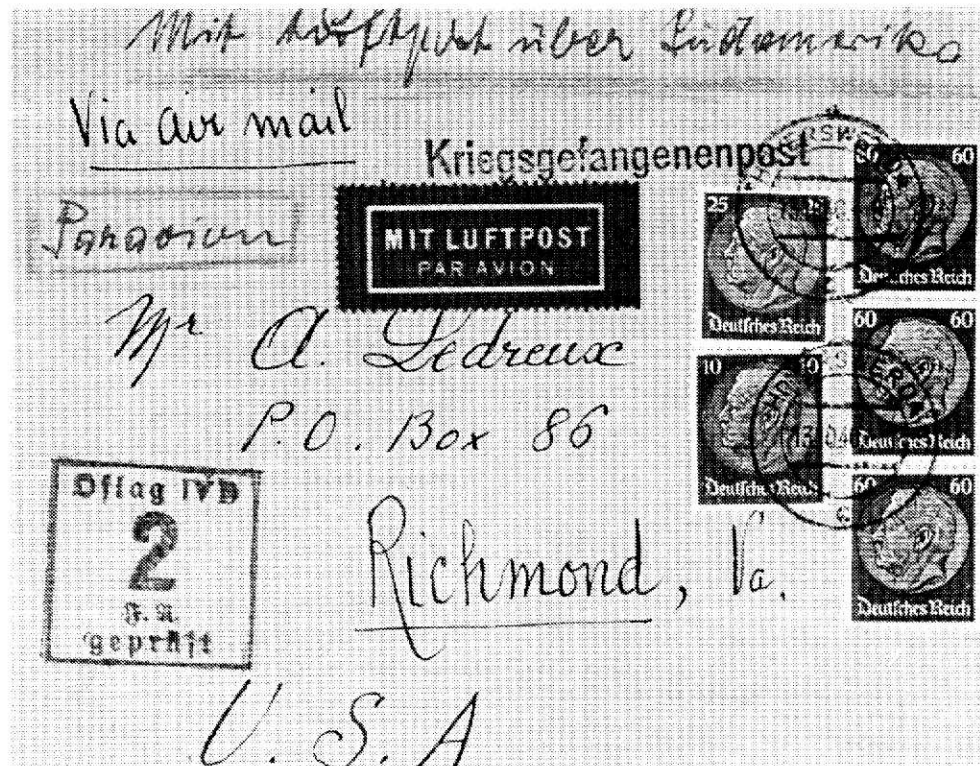 Mit Luftpost über Südamerika
Via air mail
Kriegsgefangenenpost
Par avion
MIT LUFTPOST
PAR AVION
Mr A. Ledreux
P.O. Box 86
Richmond, Va.
U.S.A
Oflag IVB
2
geprüft
25
Deutsches Reich
10 10
Deutsches Reich
60
Deutsches Reich
60 60
Deutsches Reich
60 60
Deutsches Reich